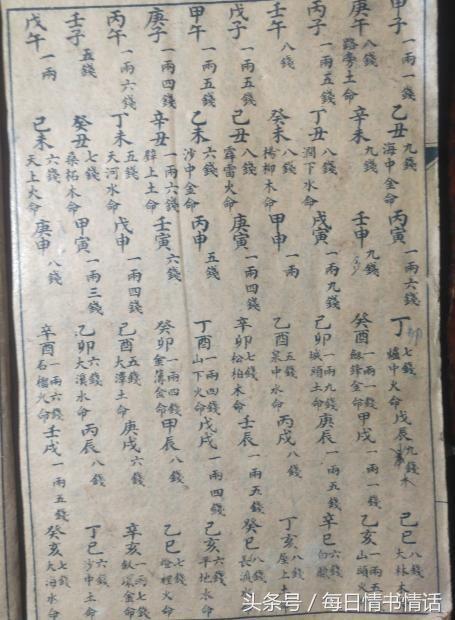 甲子 一兩一錢 乙丑 九錢 海中金命 丙寅 一兩六錢 丁卯 七錢 爐中火命 戊辰 九錢 木 己巳 八錢 大林木
庚午 八錢 路旁土命 辛未 九錢 壬申 九錢 癸酉 一兩一錢 劍鋒金命 甲戌 一兩一錢 乙亥 一兩五 山頭火
丙子 一兩五錢 丁丑 八錢 澗下水命 戊寅 一兩九錢 己卯 一兩九錢 城頭土命 庚辰 一兩五錢 辛巳 六錢 白臘
壬午 八錢 癸未 八錢 楊柳木命 甲申 一兩 乙酉 五錢 泉中水命 丙戌 八錢 丁亥 八錢 屋上
戊子 一兩五錢 己丑 八錢 霹雷火命 庚寅 一兩四錢 辛卯 七錢 松柏木命 壬辰 一兩五錢 癸巳 八錢 長流水
甲午 一兩五錢 乙未 六錢 沙中金命 丙申 五錢 丁酉 一兩四錢 山下火命 戊戌 一兩四錢 己亥 六錢 平地水命
庚子 一兩四錢 辛丑 一兩六錢 壁上土命 壬寅 六錢 癸卯 一兩四錢 金簿金命 甲辰 八錢 乙巳 七錢 燈裡火命
丙午 一兩六錢 丁未 五錢 天河水命 戊申 一兩四錢 己酉 五錢 大澤土命 庚戌 六錢 辛亥 一兩七錢 釵環金命
壬子 五錢 癸丑 七錢 桑柘木命 甲寅 一兩三錢 乙卯 六錢 大溪水命 丙辰 八錢 丁巳 六錢 沙中土命
戊午 一兩 己未 六錢 天上火命 庚申 八錢 辛酉 一兩六錢 石榴火命 壬戌 一兩五錢 癸亥 七錢 大海水命
头条号 / 每日情书情话